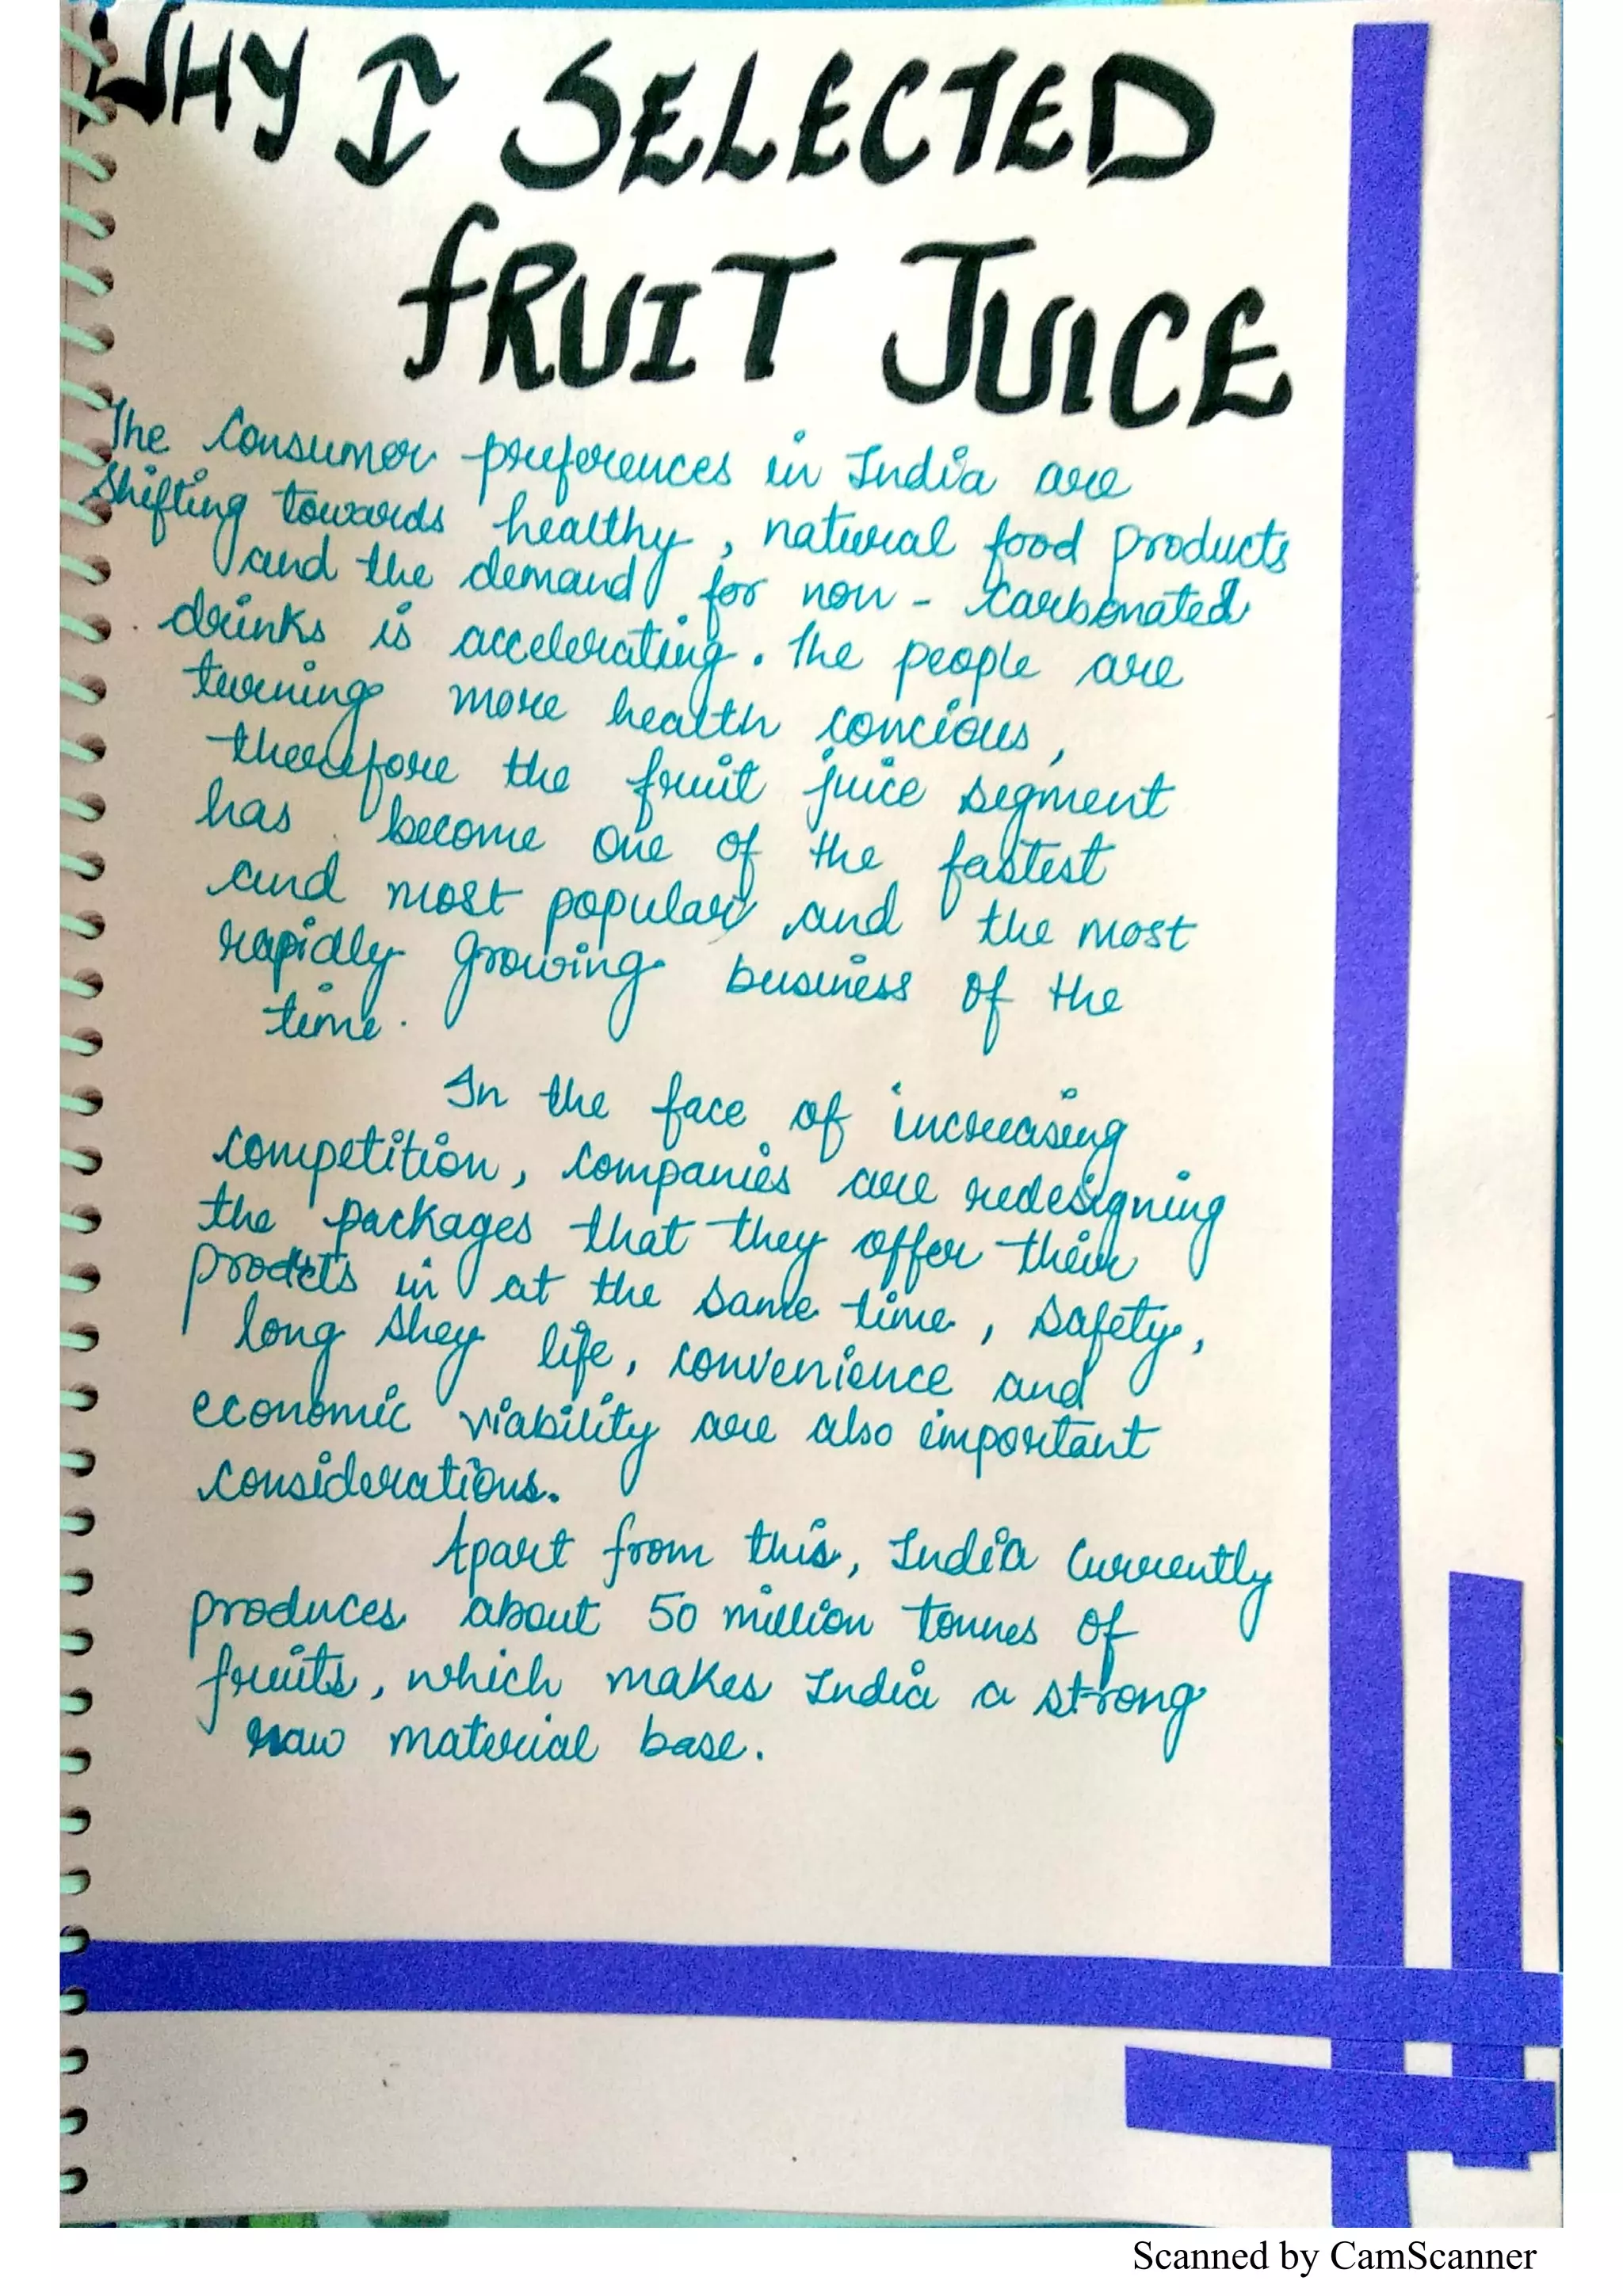 WHY I SELECTED
fRUIT JUICE
The Consumer preferences in India are
shifting towards healthy, natural food products
and the demand for non - carbonated
drinks is accelerating. The people are
turning more health concious,
therefore the fruit juice segment
has become one of the fastest
and most popular and the most
rapidly growing business of the
time.
In the face of increasing
competition, companies are redesigning
the packages that they offer their
prodcts in at the same time, safety,
long shey life, convenience and
economic viability are also important
considerations.
Apart from this, India currently
produces about 50 million tonnes of
fruits, which makes India a strong
raw material base.
Scanned by CamScanner